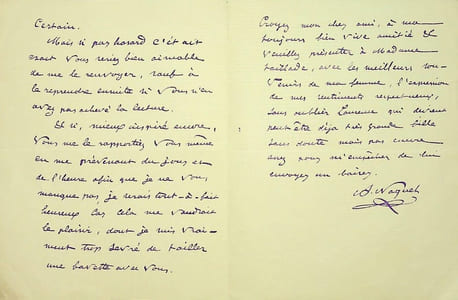 Certain.
Mais si par hasard c'était
exact vous seriez bien aimable
de me le renvoyer, sauf à
le reprendre ensuite si vous n'en
avez pas achevé la lecture.
Et si, mieux inspiré encore,
vous me le rapportiez vous même
en me prévenant du jour et
de l'heure afin que je ne vous
manque pas, je serais tout-à-fait
heureux car cela me vaudrait
le plaisir, dont je suis vrai-
ment trop sevré de tailler
une bavette avec vous.
Croyez mon cher ami, à ma
toujours bien vive amitié et
veuillez présenter à Madame
Tailhade, avec les meilleurs sou-
venirs de ma femme, l'expression
de mes sentiments respectueux,
sans oublier Laurence qui devient
peut être déjà très grande fille
sans doute mais pas encore
assez pour m'empêcher de lui
envoyer un baiser.
A. Naquet